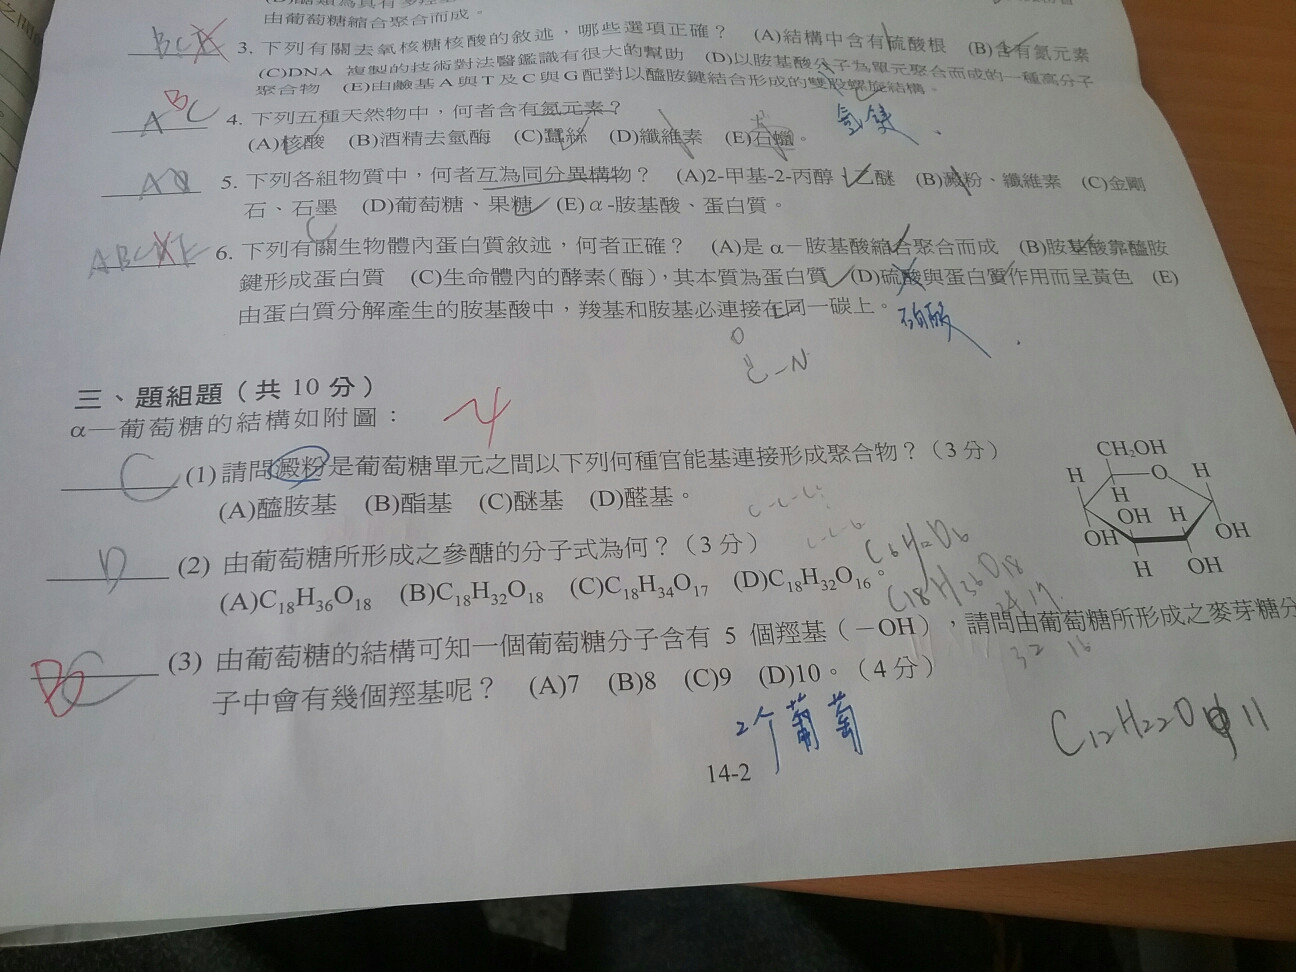 由葡萄糖縮合聚合而成。
BCE 3. 下列有關去氧核糖核酸的敘述，哪些選項正確？ (A)結構中含有硫酸根 (B)含有氮元素
(C)DNA 複製的技術對法醫鑑識有很大的幫助 (D)以胺基酸分子為單元聚合而成的一種高分子
聚合物 (E)由鹼基A與T及C與G配對以醯胺鍵結合形成的雙股螺旋結構。
氫鍵
ABC 4. 下列五種天然物中，何者含有氮元素？
(A)核酸 (B)酒精去氫酶 (C)蠶絲 (D)纖維素 (E)石蠟。
AD 5. 下列各組物質中，何者互為同分異構物？ (A)2-甲基-2-丙醇、乙醚 (B)澱粉、纖維素 (C)金剛
石、石墨 (D)葡萄糖、果糖 (E)α-胺基酸、蛋白質。
6. 下列有關生物體內蛋白質敘述，何者正確？ (A)是α－胺基酸縮合聚合而成 (B)胺基酸靠醯胺
鍵形成蛋白質 (C)生命體內的酵素(酶)，其本質為蛋白質 (D)硫酸與蛋白質作用而呈黃色 (E)
由蛋白質分解產生的胺基酸中，羧基和胺基必連接在同一碳上。
硝酸
O
C-N
三、題組題（共 10 分）
4
α—葡萄糖的結構如附圖：
C (1) 請問澱粉是葡萄糖單元之間以下列何種官能基連接形成聚合物？（3 分）
(A)醯胺基 (B)酯基 (C)醚基 (D)醛基。
CH₂OH
H O H
H
OH H
OH OH
H OH
D (2) 由葡萄糖所形成之參醣的分子式為何？（3 分）
(A)C₁₈H₃₆O₁₈ (B)C₁₈H₃₂O₁₈ (C)C₁₈H₃₄O₁₇ (D)C₁₈H₃₂O₁₆。
C₆H₁₂O₆
C₁₈H₃₆O₁₈
34 17
32 16
B C (3) 由葡萄糖的結構可知一個葡萄糖分子含有 5 個羥基（－OH），請問由葡萄糖所形成之麥芽糖分
子中會有幾個羥基呢？ (A)7 (B)8 (C)9 (D)10。（4 分）
2个葡萄
C₁₂H₂₂O 11
14-2